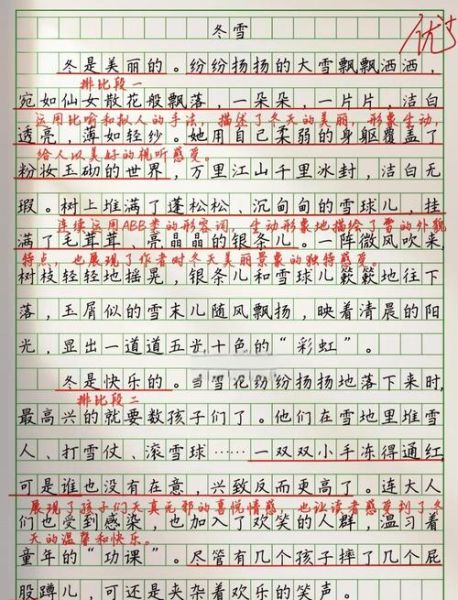 冬雪
优+
冬是美丽的。纷纷扬扬的大雪飘飘洒洒，
排比段一
宛如仙女散花般飘落，一朵朵，一片片，洁白
运用比喻和拟人的手法，描绘了冬天的美丽，形象生动，
透亮，薄如轻纱。她用自己柔弱的身躯覆盖了
给人以美好的视听感受。
粉妆玉砌的世界，万里江山千里冰封，洁白无
瑕。树上堆满了蓬松松、沉甸甸的雪球儿，挂
连续运用ABB类的形容词，生动形象地描绘了雪的外貌
满了毛茸茸、亮晶晶的银条儿。一阵微风吹来
特点，也展现了作者对冬天美丽景象的独特感受。
树枝轻轻地摇晃，银条儿和雪球儿簌簌地往下
落，玉屑似的雪末儿随风飘扬，映着清晨的阳
光，显出一道道五光十色的“彩虹”。
冬是快乐的。当雪花纷纷扬扬地落下来时，
排比段二
最高兴的就要数孩子们了。他们在雪地里堆雪
人、打雪仗、滚雪球……一双双小手冻得通红
可是谁也没有在意，兴致反而更高了。连大人
展现了孩子们天真无邪的喜悦情感，也让读者感受到了冬
们也受到感染，也加入了欢笑的人群，温习着
天的温馨和快乐。
童年的“功课”。尽管有几个孩子摔了几个屁
股蹲儿，可还是夹杂着欢乐的笑声。